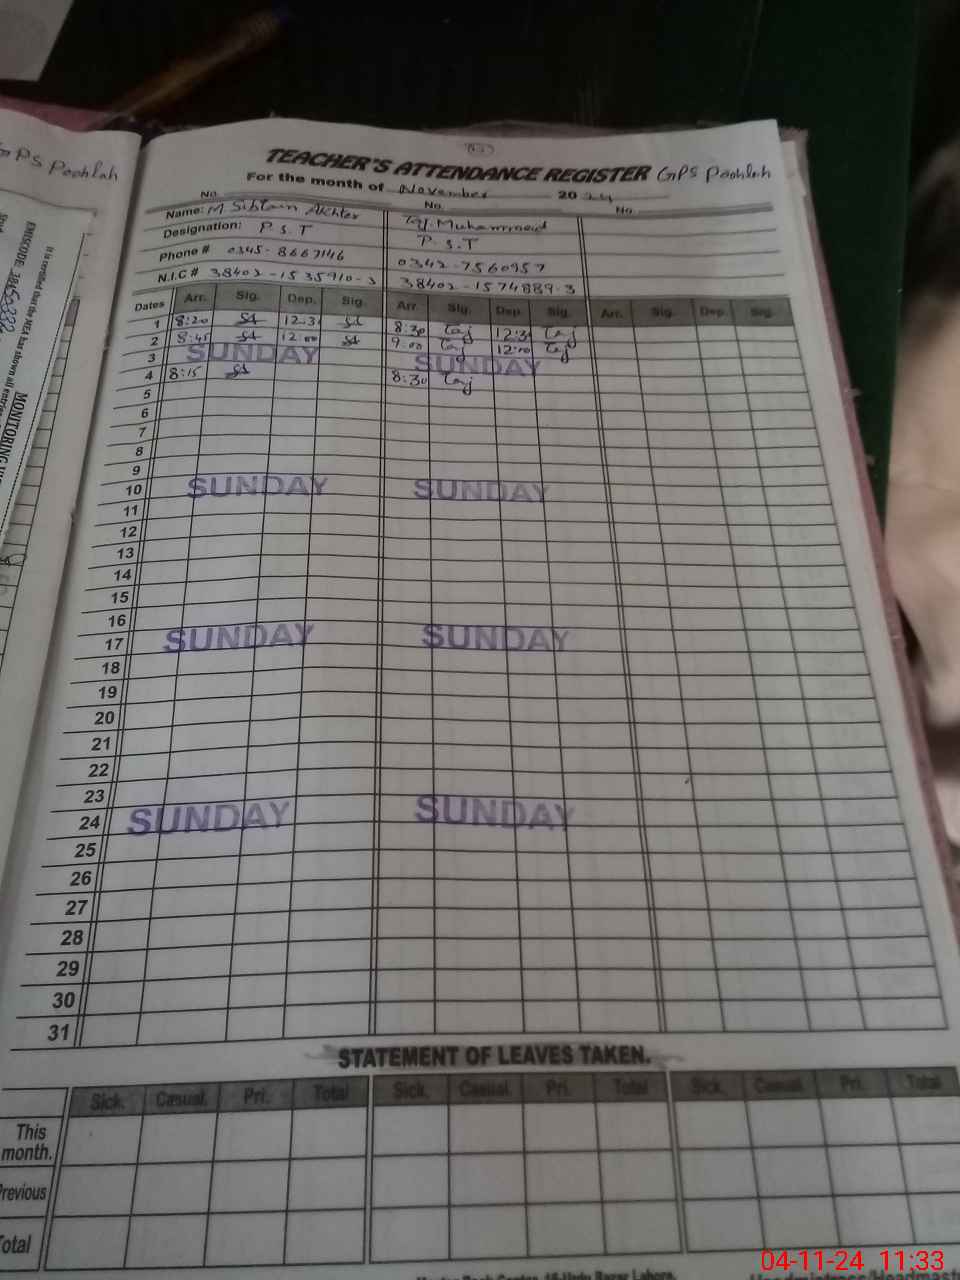 GPS Poohlah
TEACHER'S ATTENDANCE REGISTER GPS Poohlah
For the month of November 2024
No. No. No.
Name: M Sibtain Akhter Taj Muhammad
Designation: P.S.T P.S.T
Phone # 0345-8667146 0342-7560957
N.I.C # 38402-1535910-3 38402-1574889-3
Dates Arr. Sig. Dep. Sig. Arr. Sig. Dep. Sig. Arr. Sig. Dep. Sig.
1 8:20 12:3 8:30 Taj 12:3 Taj
2 8:45 12:00 9:00 Taj 12:00 Taj
3 SUNDAY SUNDAY
4 8:15 8:30 Taj
5
6
7
8
9
10 SUNDAY SUNDAY
11
12
13
14
15
16
17 SUNDAY SUNDAY
18
19
20
21
22
23
24 SUNDAY SUNDAY
25
26
27
28
29
30
31
STATEMENT OF LEAVES TAKEN.
Sick. Casual. Pri. Total Sick. Casual. Pri. Total Sick. Casual. Pri. Total
This
month.
Previous
Total
04-11-24 11:33